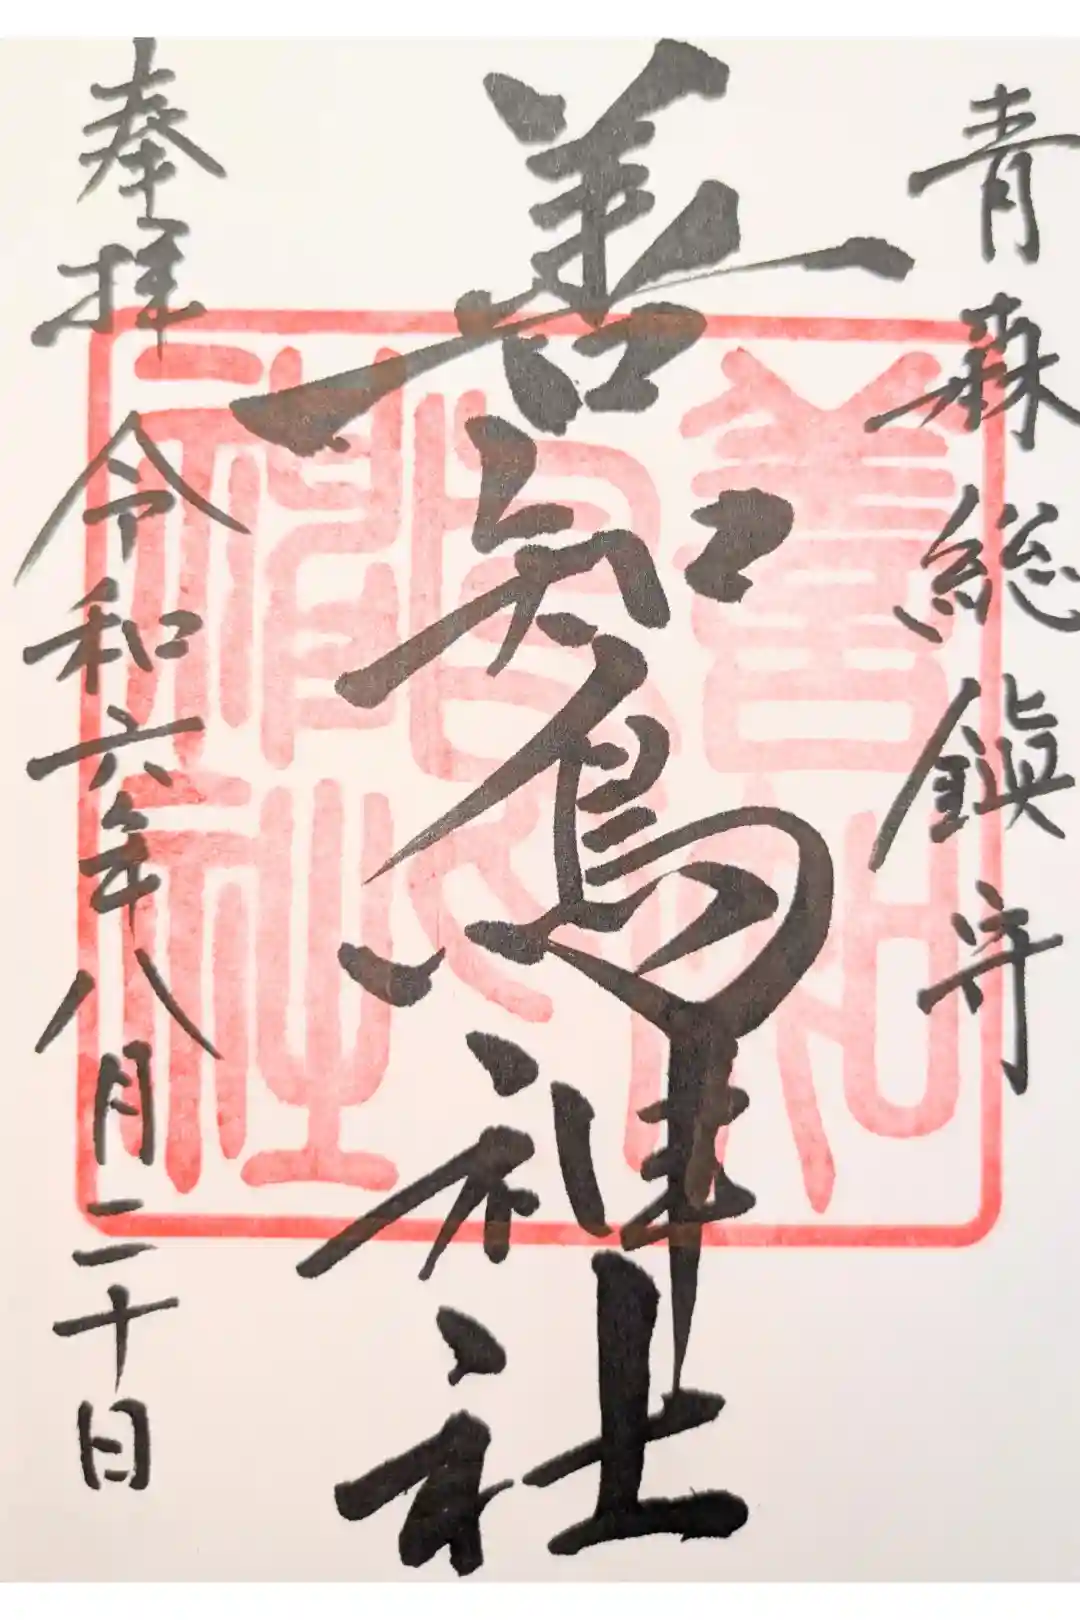 青森総鎮守
善知鳥神社
奉拝 令和六年八月二十日
善知鳥神社